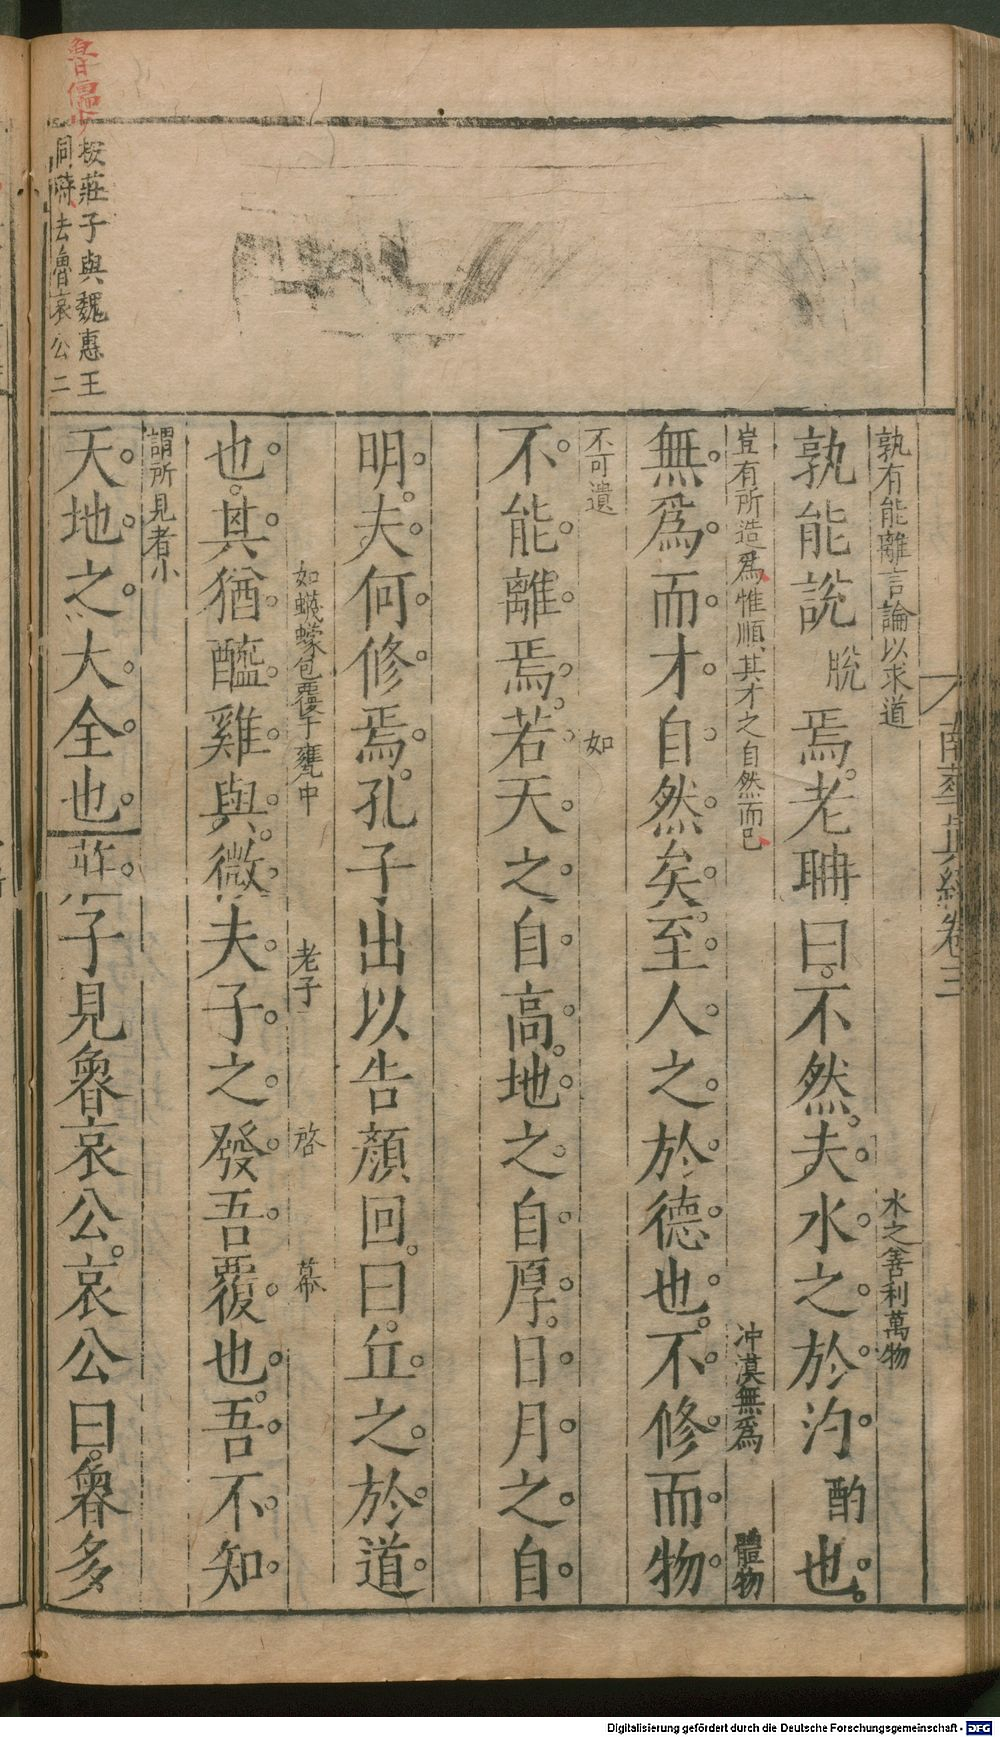 南華眞經卷三
孰有能離言論以求道 水之善利萬物
孰能說脫焉老聃曰不然夫水之於汋酌也
豈有所造爲惟順其才之自然而已 冲漠無爲 體物
無爲而才自然矣至人之於德也不修而物
不可遺 如
不能離焉若天之自高地之自厚日月之自
明夫何修焉孔子出以告顏回曰丘之於道
如蠛蠓包覆于甕中 老子 啓 幕
也其猶醯雞與微夫子之發吾覆也吾不知
謂所見者小
天地之大全也莊子見魯哀公哀公曰魯多
魯儒少
按莊子與魏惠王
同時去魯哀公二
Digitalisierung gefördert durch die Deutsche Forschungsgemeinschaft - DFG